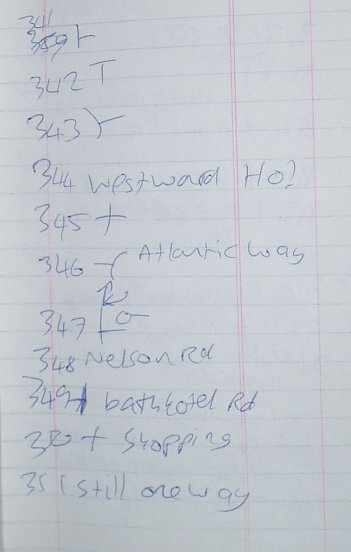 341
342 T
343
344 westward Ho!
345 +
346 Atlantic way
347
348 Nelson Rd
349 bath hotel Rd
350 + Shopping
351 still one way